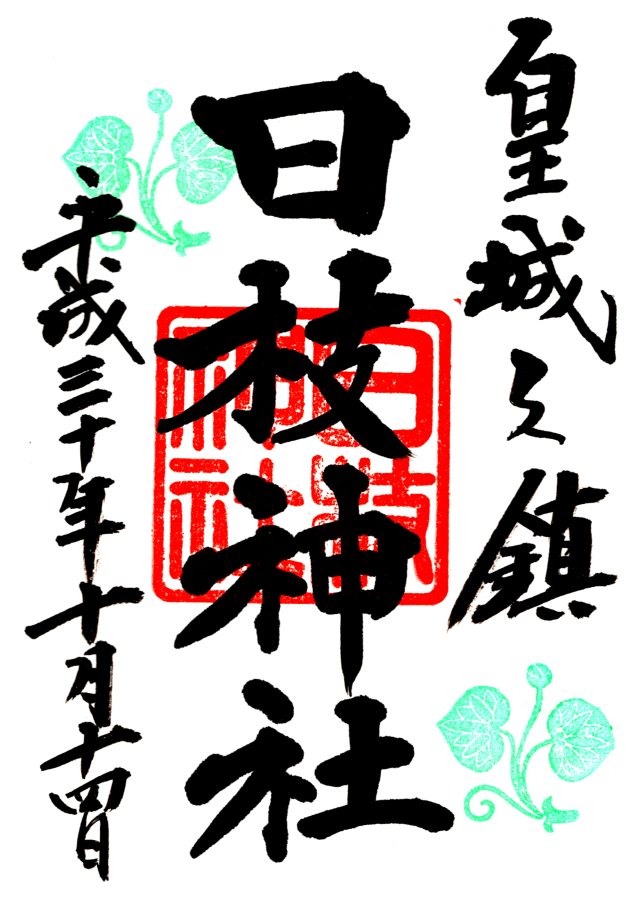 皇城之鎮
日枝神社
日枝神社
平成三十年十月十四日